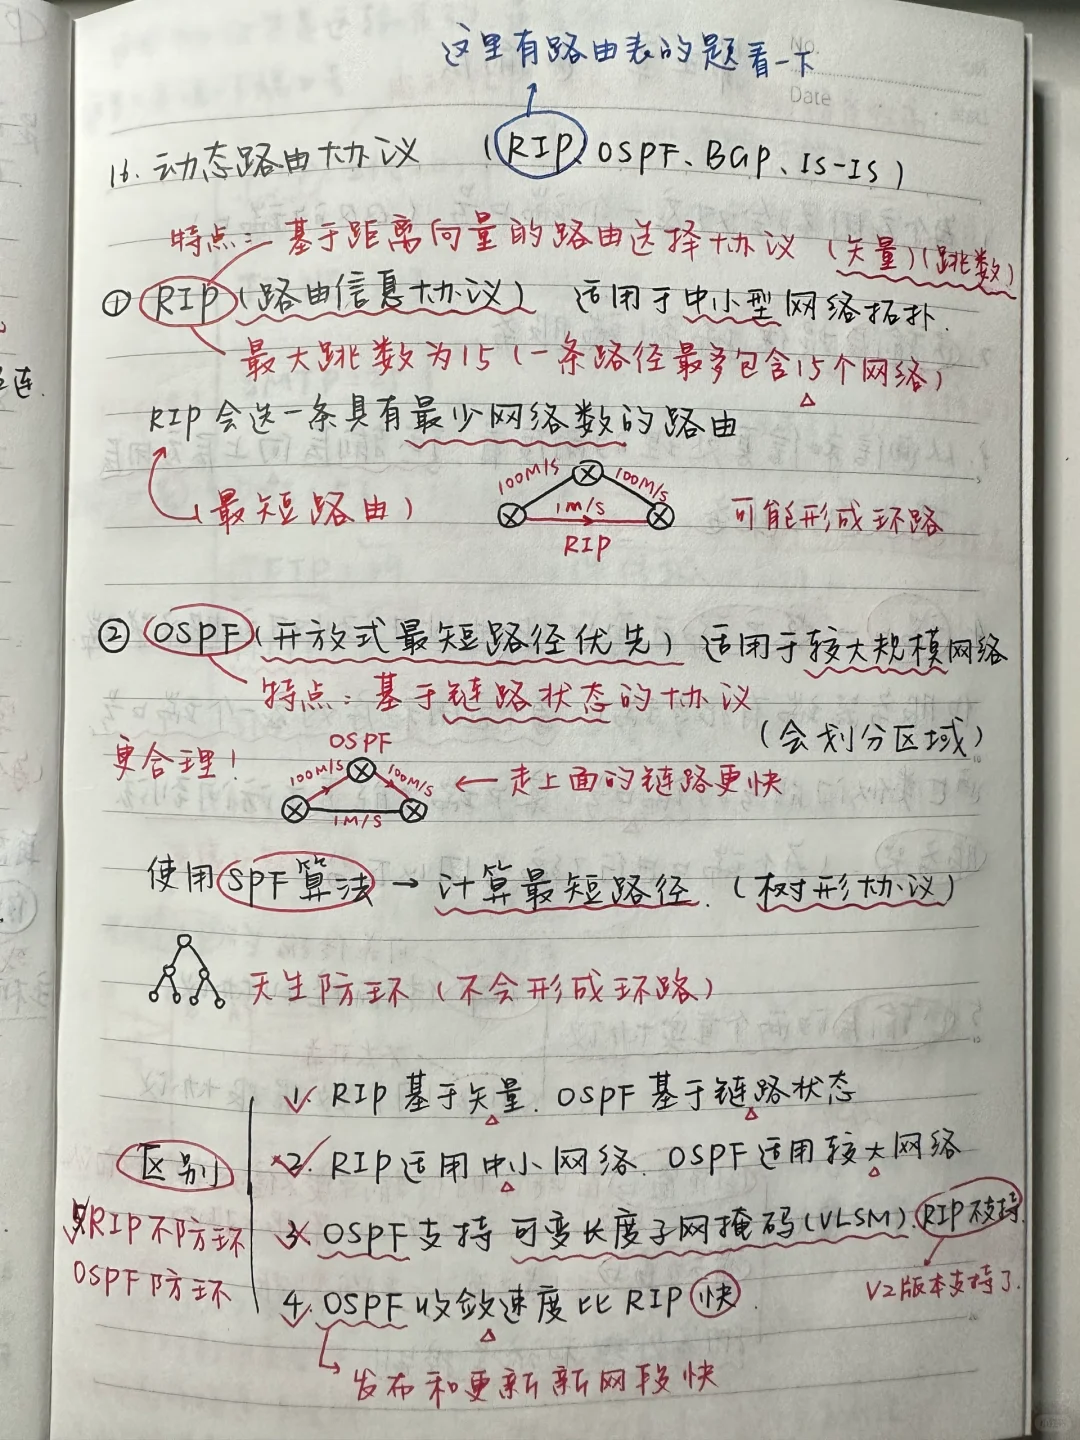 这里有路由表的题看一下
No.
Date
16. 动态路由协议 (RIP、OSPF、BGP、IS-IS)
特点：基于距离向量的路由选择协议 (矢量)(跳数)
① RIP (路由信息协议) 适用于中小型网络拓扑.
最大跳数为15 (一条路径最多包含15个网络)
RIP会选一条具有最少网络数的路由
(最短路由)
100M/S
100M/S
1M/S
RIP
可能形成环路
② OSPF (开放式最短路径优先) 适用于较大规模网络
特点：基于链路状态的协议
(会划分区域)
更合理！
OSPF
100M/S
100M/S
1M/S
← 走上面的链路更快
使用SPF算法 → 计算最短路径. (树形协议)
天生防环 (不会形成环路)
区别
1. RIP基于矢量. OSPF基于链路状态
2. RIP适用中小网络. OSPF适用较大网络
3. OSPF支持可变长度子网掩码(VLSM). RIP不支持.
V2版本支持了.
4. OSPF收敛速度比RIP快.
发布和更新新网段快
5. RIP不防环
OSPF防环